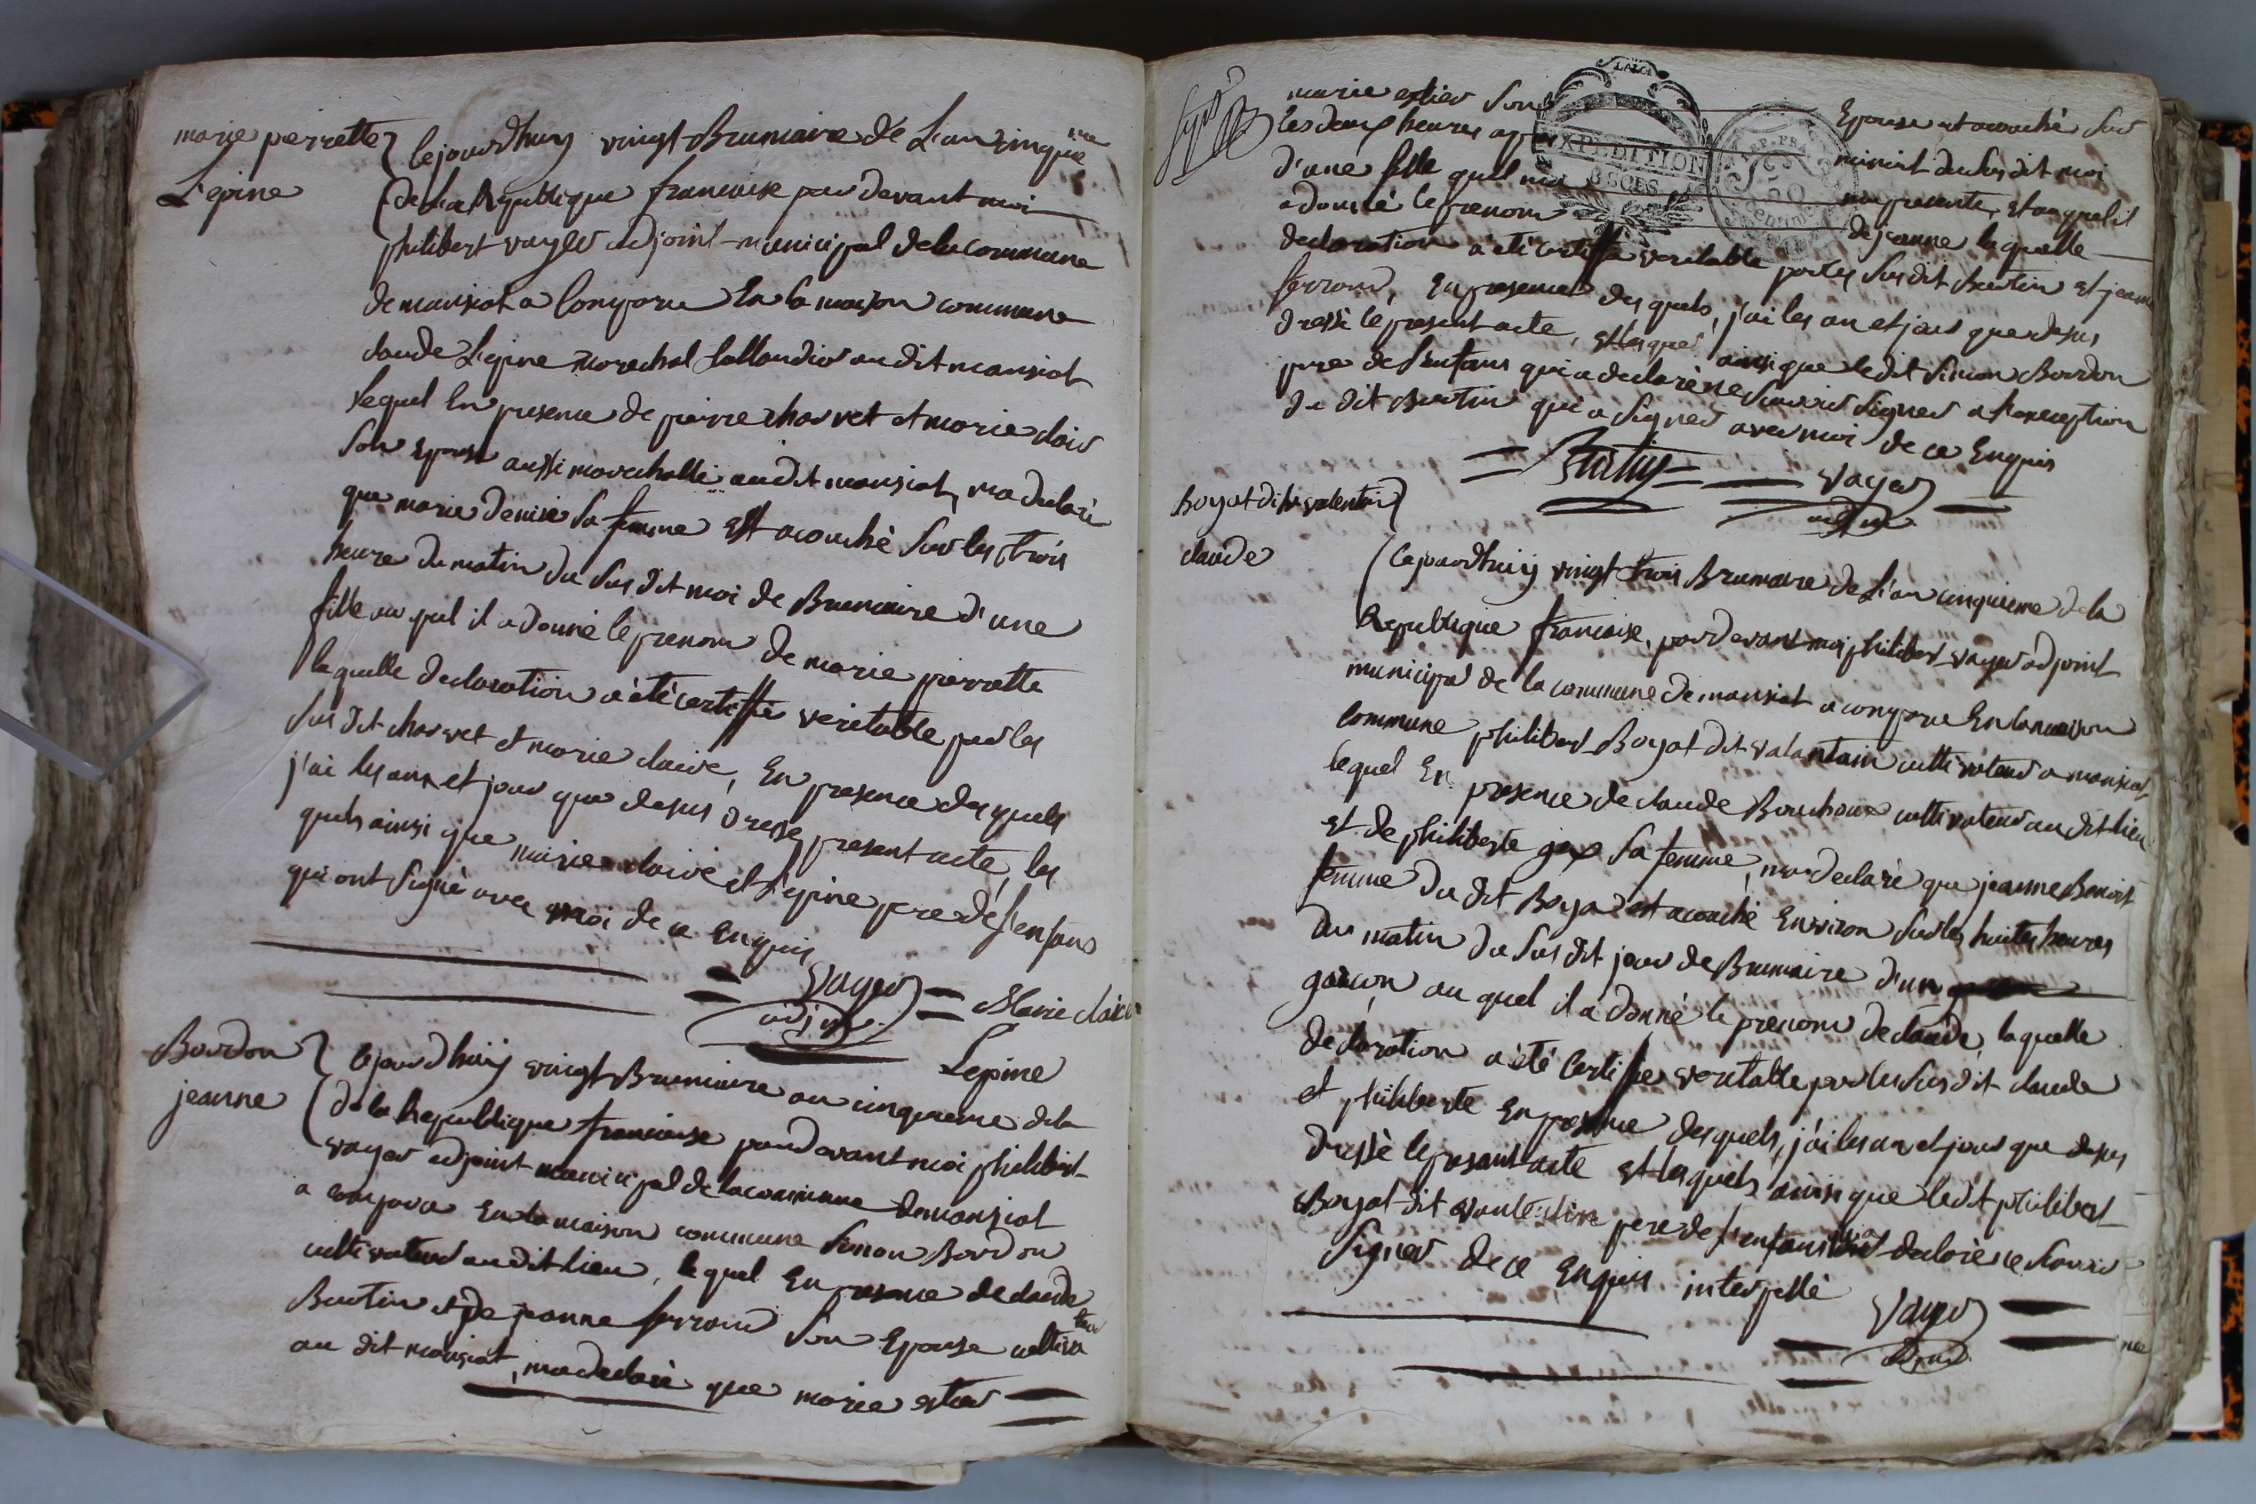 marie perrette
Lepine
Cejourdhuy vingt Brumaire de L'an cinque me
de la Republique francaise par devant moi
philibert vayer adjoint municipal dela commune
de mansiat a comparu En la maison commune
claude Lepine marechal tallandier au dit mansiat
lequel En presence de pierre charvet et marie claire
son epouse aussi marechalle audit mansiat, ma declaré
que marie denise sa femme est acouché sur les trois
heure du matin du sus dit moi de Brumaire d'une
fille au quel il a donné le prenom de marie pierrette
laquelle declaration a été certiffié veritable par les
sus dit charvet et marie claire, En presence des quels
j'ai les an et jour que desus dressé present acte, les
quels ainsi que marie claire et Lepine pere de l'enfans
qui ont signé avec moi de ce Enquis
vayer
adjoint
Marie claire
Lepine
Bourdon
jeanne
Cejourdhuij vingt Brumaire an cinquieme dela
dela Republique francaise pardevant moi philibert
vayer adjoint municipal de la commune de mansiat
a comparu En la maison commune Simon Bourdon
cultivateur audit lieu, le quel En presence de claude
Buatin et de jeanne ferrand son Epouse cultiva teur
au dit mansiat, ma declaré que marie
marie son Epouse et acouché sur
les deux heures minuit du sus dit moi
d'une fille quel ma presenté, et auquel il
a donné le prenom de jeanne laquelle
declaration a été certiffié veritable par les sus dit Buatin et jeanne
ferrand, En presence des quels, j'ai les an et jour que desus
dressé le present acte, et lesquel ainsi que ledit Simon Bourdon
pere de l'enfans qui a declaré ne scavoir signer a l'exception
du dit Buatin qui a signer avec moi de ce Enquis
Buatin
vayer
adjoint
Boyat dit valentin
claude
Cejourdhuij vingt trois Brumaire de L'an cinquieme de la
Republique francaise, par devant moi philibert vayer adjoint
municipal de la commune de mansiat a comparu En la maison
commune philibert Boyat dit valantain cultivateur a mansiat
lequel En presence de claude Bouchoux cultivateur au dit lieu
et de philiberte sa femme, ma declaré que jeanne Benoit
femme du dit Boya est acouché Environ sur les huites heures
du matin du sus dit jour de Brumaire d'un
garcon au quel il a donné le prenom de claude, laquelle
declaration a été certiffié veritable par les sus dit claude
et philiberte En presence desquels, j'ai les an et jour que desus
dressé le present acte et lesquels ainsi que ledit philibert
Boyat dit vantentin pere de l'enfans declaré ne scavoir
signer de ce Enquis interpellé
vayer
adjoint
LA LOI
EXPEDITION
REP. FRA
50
centimes